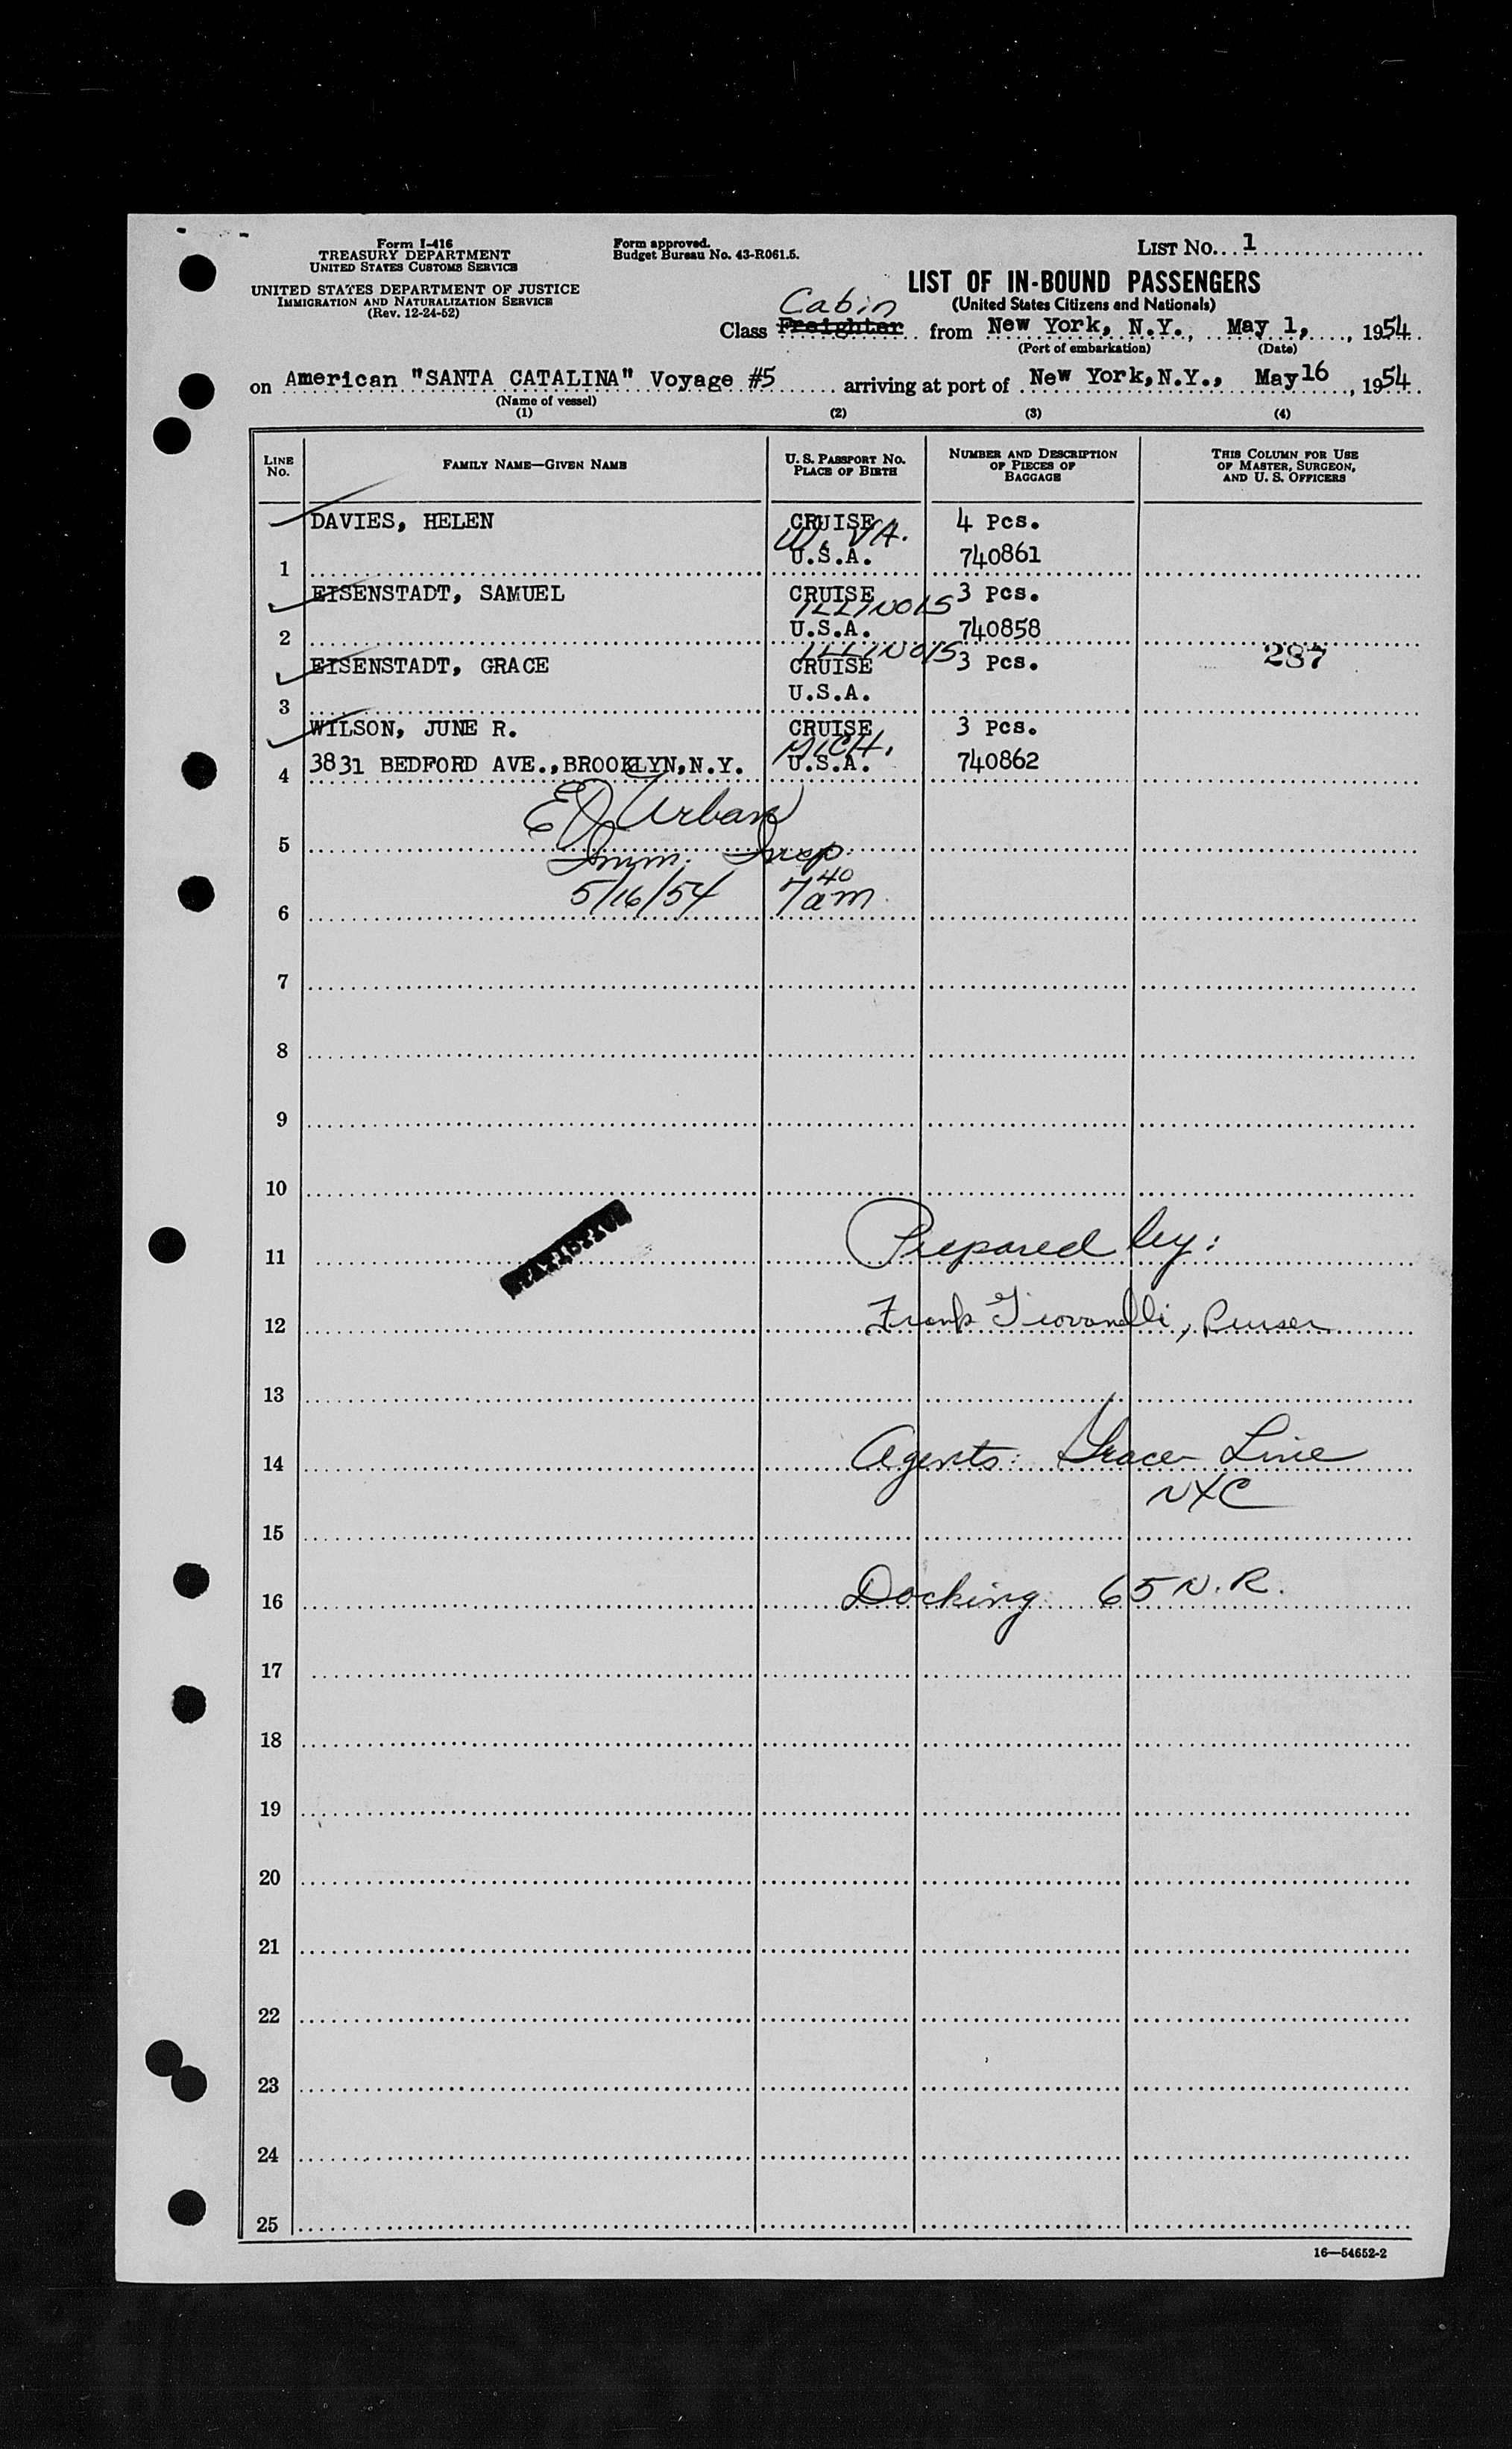 Form I-416
TREASURY DEPARTMENT
UNITED STATES CUSTOMS SERVICE
UNITED STATES DEPARTMENT OF JUSTICE
IMMIGRATION AND NATURALIZATION SERVICE
(Rev. 12-24-52)
Form approved.
Budget Bureau No. 43-R061.5.
LIST NO. 1
LIST OF IN-BOUND PASSENGERS
(United States Citizens and Nationals)
Cabin
Class Freighter from New York, N.Y., May 1, , 1954
(Port of embarkation) (Date)
on American "SANTA CATALINA" Voyage #5 arriving at port of New York, N.Y., May 16 , 1954
(Name of vessel)
(1) (2) (3) (4)
LINE NO. FAMILY NAME—GIVEN NAME U. S. PASSPORT NO. PLACE OF BIRTH NUMBER AND DESCRIPTION OF PIECES OF BAGGAGE THIS COLUMN FOR USE OF MASTER, SURGEON, AND U. S. OFFICERS
DAVIES, HELEN CRUISE 4 Pcs.
W. VA.
1 U.S.A. 740861
EISENSTADT, SAMUEL CRUISE 3 Pcs.
ILLINOIS
2 U.S.A. 740858
ILLINOIS 287
EISENSTADT, GRACE CRUISE 3 Pcs.
3 U.S.A.
WILSON, JUNE R. CRUISE 3 Pcs.
MICH.
4 3831 BEDFORD AVE.,BROOKLYN,N.Y. U.S.A. 740862
Urban
5 Imm. Insp.
6 5/16/54 7 40 am
7
8
9
10
11 Prepared by:
12 Frank Giovanelli, Purser
13
14 Agents: Grace Line
NYC
15
16 Docking 65 N.R.
17
18
19
20
21
22
23
24
25
16—54652-2